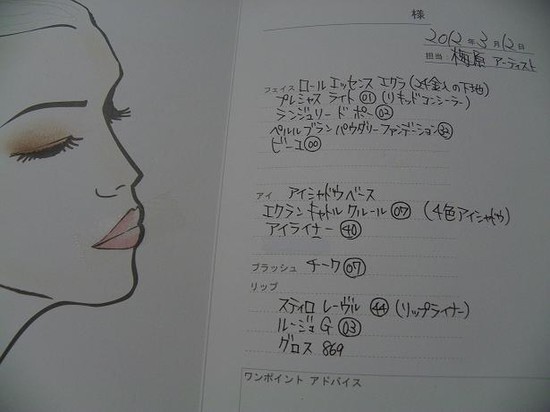 様
2012年3月12日
担当 梅原 アーティスト
フェイス ロールエッセンス エクラ(24金入の下地)
プレシャス ライト 01 (リキッドコンシーラー)
ランジュリー ド ポー 02
ペルルブラン パウダリーファンデーション
ビーユ 00
アイ アイシャドウベース
エクラン キャトル クルール 07 (4色アイシャドウ)
アイライナー 40
ブラッシュ チーク 07
リップ
スティロ レーヴル 44 (リップライナー)
ルージュ G 03
グロス 869
ワンポイント アドバイス